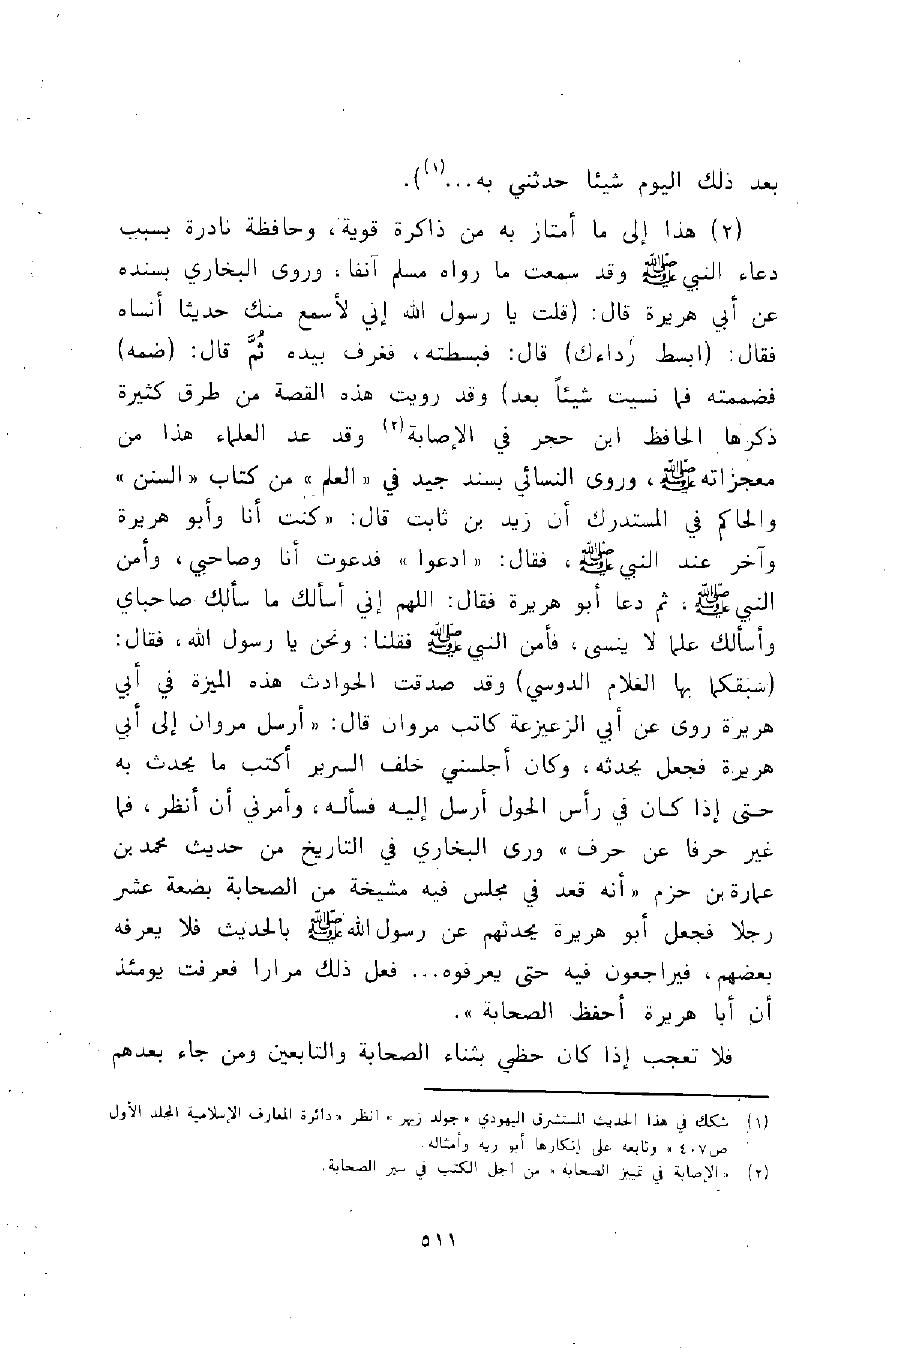 بعد ذلك اليوم شيئا حدثني به...(١)).
(٢) هذا إلى ما أمتاز به من ذاكرة قوية، وحافظة نادرة بسبب
دعاء النبي ﷺ وقد سمعت ما رواه مسلم آنفا، وروى البخاري بسنده
عن أبي هريرة قال: (قلت يا رسول الله إني لأسمع منك حديثا أنساه
فقال: (ابسط رُداءك) قال: فبسطته، فغرف بيده ثُمَّ قال: (ضمه)
فضممته فما نسيت شيئاً بعد) وقد رويت هذه القصة من طرق كثيرة
ذكرها الحافظ ابن حجر في الإصابة(٢) وقد عد العلماء هذا من
معجزاته ﷺ، وروى النسائي بسند جيد في «العلم» من كتاب «السنن»
والحاكم في المستدرك أن زيد بن ثابت قال: «كنت أنا وأبو هريرة
وآخر عند النبي ﷺ، فقال: «ادعوا» فدعوت أنا وصاحبي، وأمن
النبي ﷺ، ثم دعا أبو هريرة فقال: اللهم إني أسألك ما سألك صاحباي
وأسألك علما لا ينسى، فأمن النبي ﷺ فقلنا: ونحن يا رسول الله، فقال:
(سَبقكما بها الغلام الدوسي) وقد صدقت الحوادث هذه الميزة في أبي
هريرة روى عن أبي الزعيزعة كاتب مروان قال: «أرسل مروان إلى أبي
هريرة فجعل يحدثه، وكان أجلسني خلف السرير أكتب ما يحدث به
حتى إذا كان في رأس الحول أرسل إليه فسأله، وأمرني أن أنظر، فما
غير حرفا عن حرف» ورى البخاري في التاريخ من حديث محمد بن
عمارة بن حزم «أنه قعد في مجلس فيه مشيخة من الصحابة بضعة عشر
رجلا فجعل أبو هريرة يحدثهم عن رسول الله ﷺ بالحديث فلا يعرفه
بعضهم، فيراجعون فيه حتى يعرفوه... فعل ذلك مرارا فعرفت يومئذ
أن أبا هريرة أحفظ الصحابة».
فلا تعجب إذا كان حظي بثناء الصحابة والتابعين ومن جاء بعدهم
(١) شكك في هذا الحديث المستشرق اليهودي «جولد زيهر» انظر «دائرة المعارف الإسلامية المجلد الأول
ص٤٠٧» وتابعه على إنكارها أبو ريه وأمثاله.
(٢) «الإصابة في تمييز الصحابة» من اجل الكتب في سير الصحابة.
٥١١